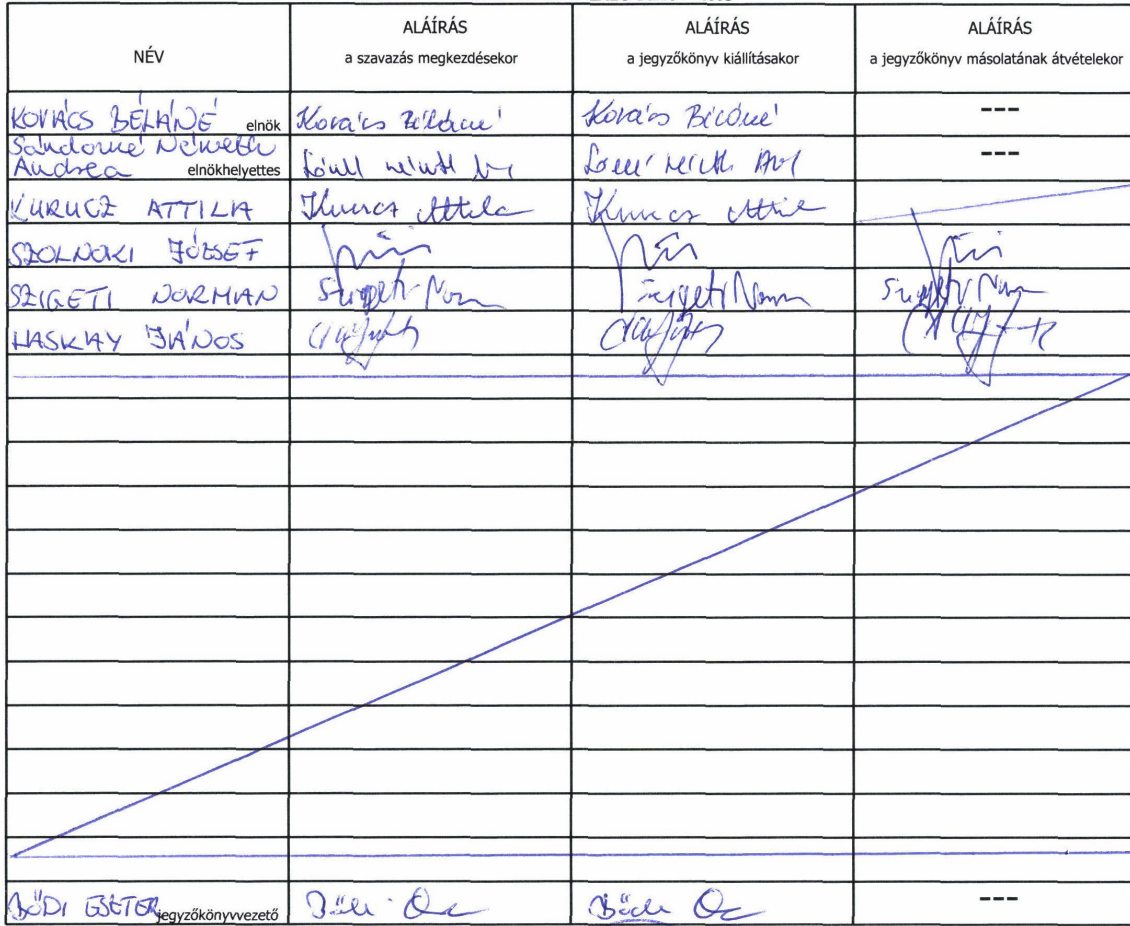 NÉV
ALÁÍRÁS
a szavazás megkezdésekor
ALÁÍRÁS
a jegyzőkönyv kiállításakor
ALÁÍRÁS
a jegyzőkönyv másolatának átvételekor
KOVÁCS BÉLÁNÉ elnök Kovács Béláné Kovács Béláné ---
Sándorné Németh
Andrea elnökhelyettes ---
KURUCZ ATTILA Kurucz Attila Kurucz Attila
SZOLNOKI JÓZSEF
SZIGETI NORMAN Szigeti Norman Szigeti Norman Szigeti Norman
LASKAY JÁNOS
BŐDI ESZTER jegyzőkönyvvezető ---